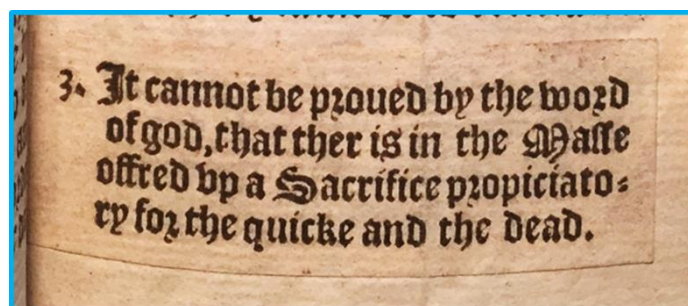 3. It cannot be proued by the word
of god, that ther is in the Masse
offred vp a Sacrifice propiciato=
ry for the quicke and the dead.